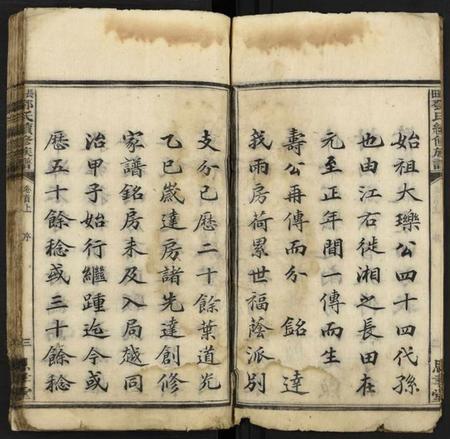 始祖大瓅公四十四代孫
也由江右徙湘之長田在
元至正年間一傳而生
壽公再傳而分 銘 達
我兩房荷累世福蔭派別
支分已歷二十餘葉道光
乙巳歲達房諸先達創修
家譜銘房未及入局越同
治甲子始行繼踵迄今或
歷五十餘稔或三十餘稔
鄧氏續修族譜
卷首上 序
三